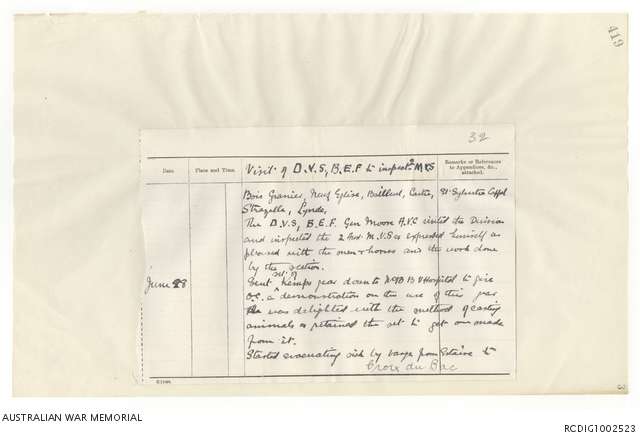 419
32
Date
Place and Time.
Visit of D.V.S, B.E.F to inspect 2 M.V.S
Remarks or References to Appendices, &c., attached.
Bois Grenier, Neuf Eglise, Bailleul, Castre, St Sylvestre Cappel
Strazelle, Lynde,
The D.V.S, B.E.F. Gen Moore A.V.C visited the Division
and inspected the 2 Aus. M.V.S & expressed himself as
pleased with the men & horses and the work done
by the section.
June 28
Sent set of Kemps gear down to No 9 B V Hospital to give
O.C. a demonstration on the use of this gear
He was delighted with the method of casting
animals & retained the set to get one made
from it.
Started evacuating sick by barge from Estaire to
Croix du Bac
AUSTRALIAN WAR MEMORIAL
RCDIG1002523